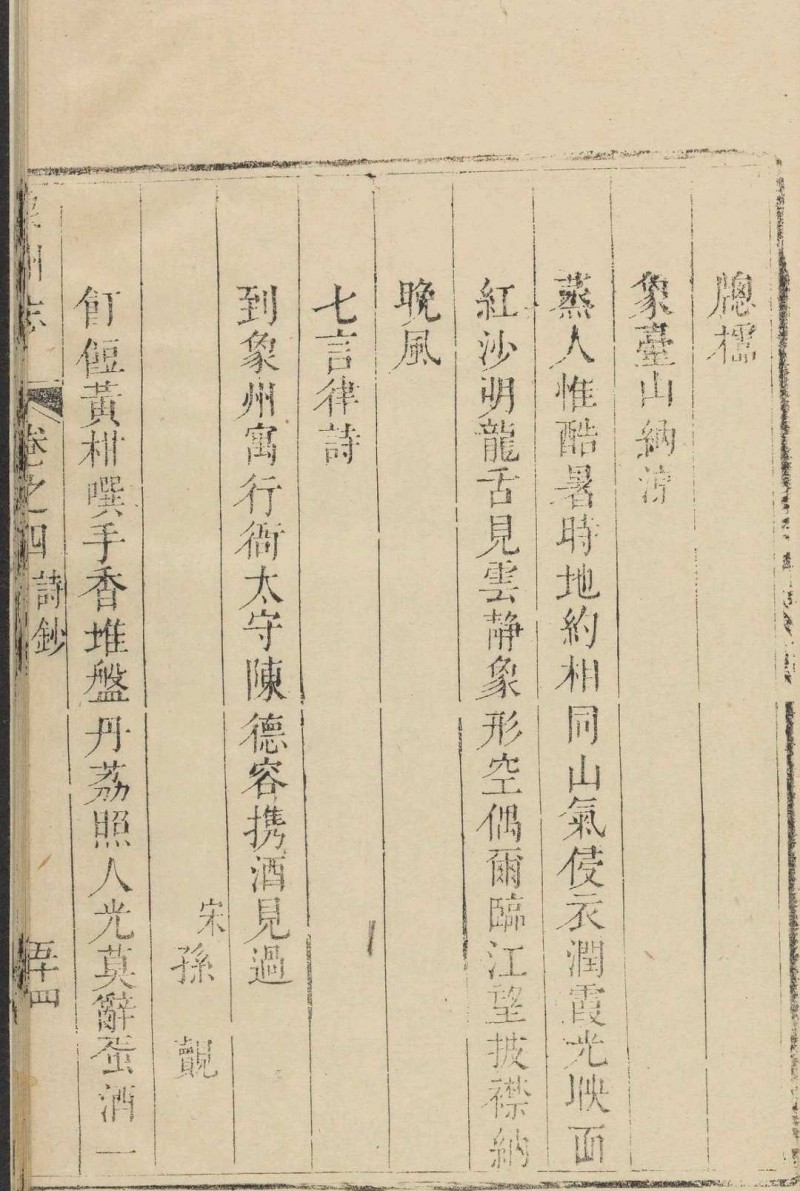 牕櫺
象臺山納涼
蒸人惟酷暑時地約相同山氣侵衣潤霞光映面
紅沙明龍舌見雲静象形空偶爾臨江望披襟納
晚風
七言律詩
到象州寓行衙太守陳德容携酒見過
宋孫覿
飣餖黃柑噀手香堆盤丹荔照人光莫辭蛋酒一
象州志
卷之四
詩鈔
五十四